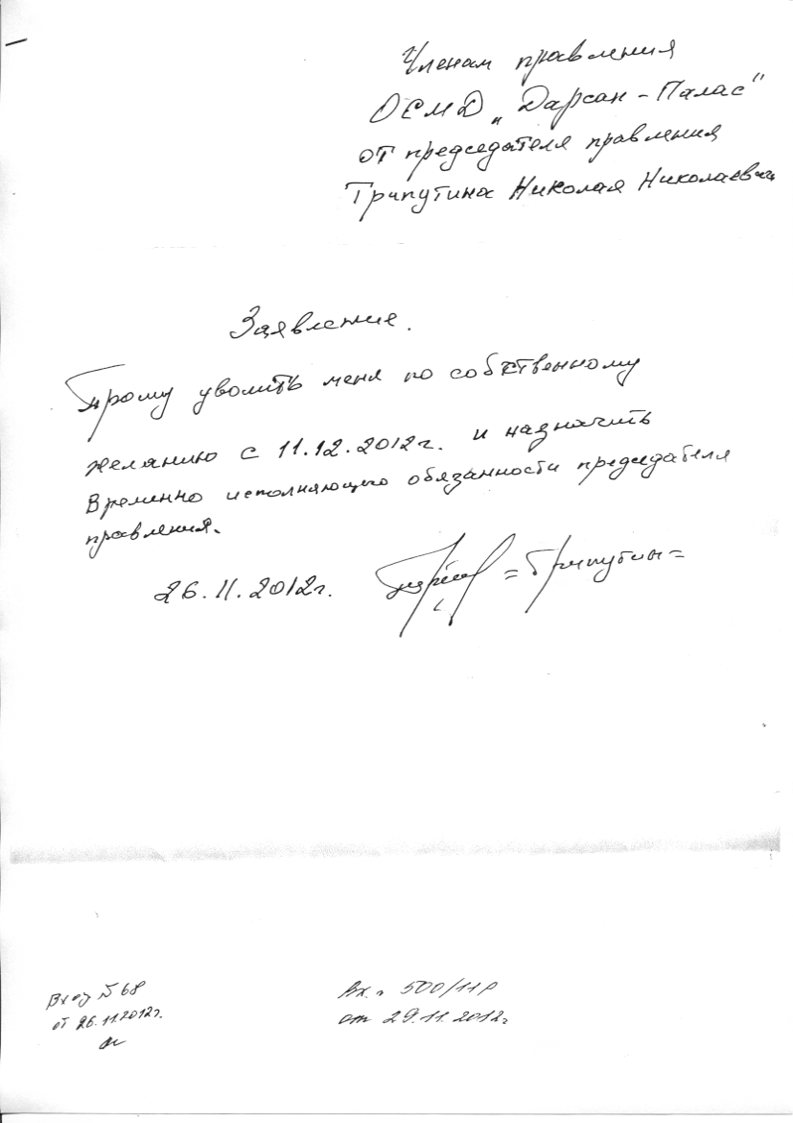 Членам правления
ОСМД "Дарсан-Палас"
от председателя правления
Трипутина Николая Николаевича
Заявление.
Прошу уволить меня по собственному
желанию с 11.12.2012г. и назначить
Временно исполняющего обязанности председателя
правления.
26.11.2012г. =Трипутин=
Вход № 68
от 26.11.2012г.
Вх. 500/11р
от 29.11.2012г